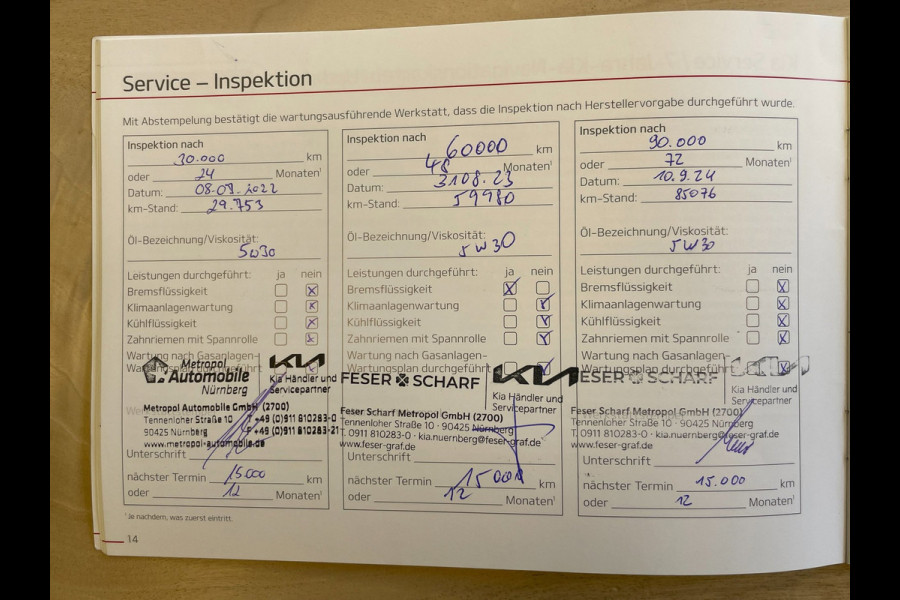 Service – Inspektion
Mit Abstempelung bestätigt die wartungsausführende Werkstatt, dass die Inspektion nach Herstellervorgabe durchgeführt wurde.
Inspektion nach
30.000 km
oder 24 Monaten¹
Datum: 08.09.2022
km-Stand: 29.753
Öl-Bezeichnung/Viskosität:
5W30
Leistungen durchgeführt: ja nein
Bremsflüssigkeit
Klimaanlagenwartung
Kühlflüssigkeit
Zahnriemen mit Spannrolle
Wartung nach Gasanlagen-
Wartungsplan durchgeführt
Metropol Automobile Nürnberg
KIA
Kia Händler und
Servicepartner
Metropol Automobile GmbH (2700)
Tennenloher Straße 10 T +49 (0)911 810283-0
90425 Nürnberg F +49 (0)911 810283-21
www.metropol-automobile.de
Unterschrift
nächster Termin 15000 km
oder 12 Monaten¹
Inspektion nach
60000 km
oder 48 Monaten¹
Datum: 3108.23
km-Stand: 59980
Öl-Bezeichnung/Viskosität:
5W30
Leistungen durchgeführt: ja nein
Bremsflüssigkeit
Klimaanlagenwartung
Kühlflüssigkeit
Zahnriemen mit Spannrolle
Wartung nach Gasanlagen-
Wartungsplan durchgeführt
FESER SCHARF KIA
Kia Händler und
Servicepartner
Feser Scharf Metropol GmbH (2700)
Tennenloher Straße 10 · 90425 Nürnberg
T. 0911 810283-0 · kia.nuernberg@feser-graf.de
www.feser-graf.de
Unterschrift
nächster Termin 15000 km
oder 12 Monaten¹
Inspektion nach
90.000 km
oder 72 Monaten¹
Datum: 10.9.24
km-Stand: 85076
Öl-Bezeichnung/Viskosität:
5W30
Leistungen durchgeführt: ja nein
Bremsflüssigkeit
Klimaanlagenwartung
Kühlflüssigkeit
Zahnriemen mit Spannrolle
Wartung nach Gasanlagen-
Wartungsplan durchgeführt
FESER SCHARF KIA
Kia Händler und
Servicepartner
Feser Scharf Metropol GmbH (2700)
Tennenloher Straße 10 · 90425 Nürnberg
T. 0911 810283-0 · kia.nuernberg@feser-graf.de
www.feser-graf.de
Unterschrift
nächster Termin 15.000 km
oder 12 Monaten¹
¹Je nachdem, was zuerst eintritt.
14